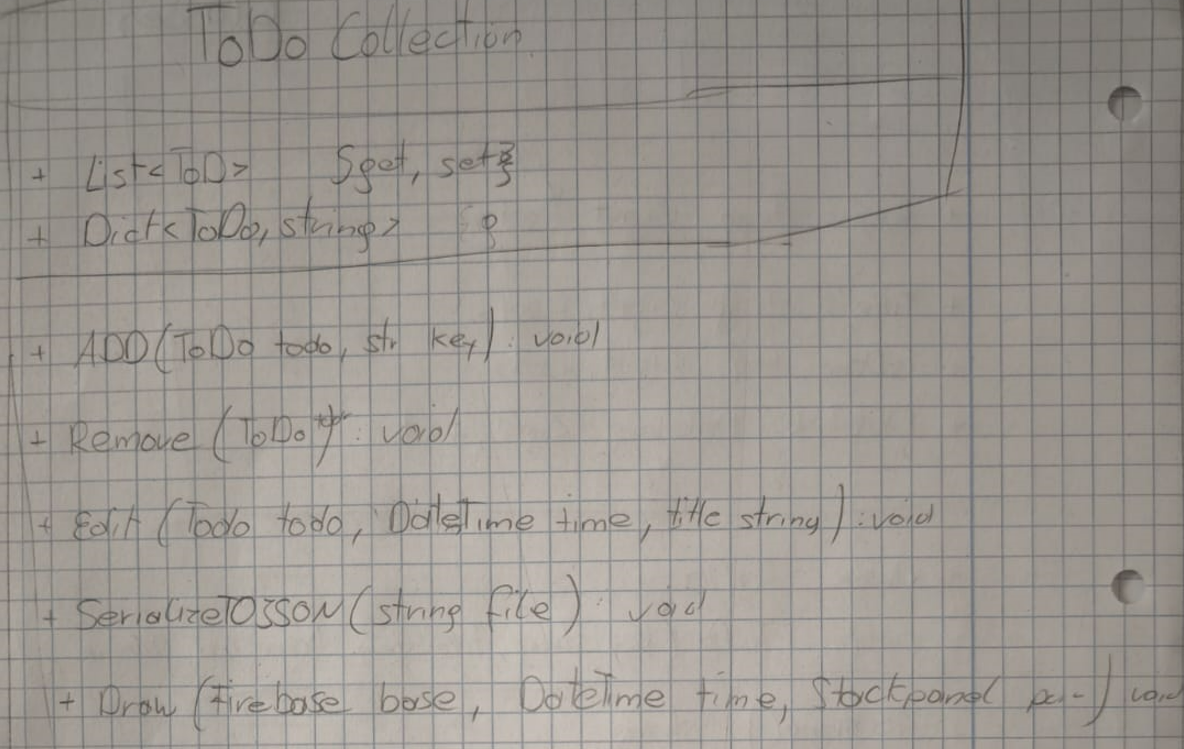 ToDo Collection
+ List<ToDo> {get, set}
+ Dict<ToDo, string>
+ ADD(ToDo todo, str key) : void
+ Remove (ToDo) : void
+ Edit (Todo todo, DateTime time, title string) : void
+ SerializeTOJSON (string file) : void
+ Draw (Firebase base, DateTime time, Stackpanel void